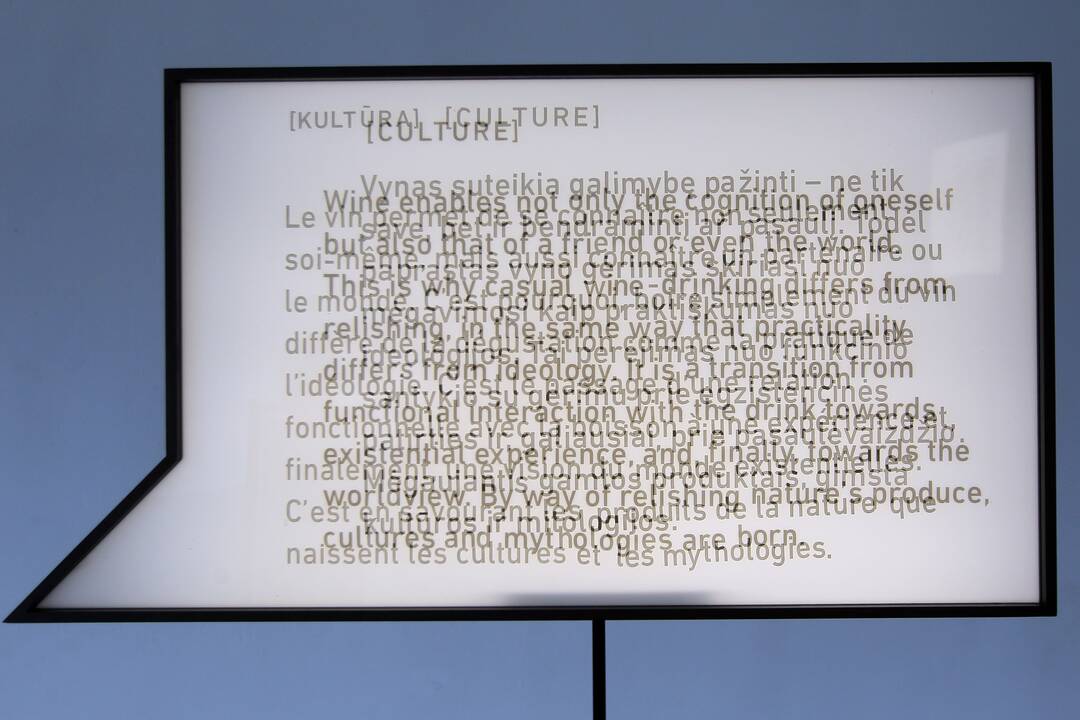 [KULTŪRA] [CULTURE]
[CULTURE]
Vynas suteikia galimybę pažinti – ne tik
Wine enables not only the cognition of oneself
Le vin permet de se
save, bet ir bendraminti ar pasaulį. Todėl
but also that of a friend or even the world.
soi-même, mais aussi connaître un partenaire ou
paprastas vyno gėrimas skiriasi nuo
This is why casual wine-drinking differs from
le monde. C'est pourquoi du vin
mėgavimosi kaip praktiškumas nuo
relishing, in the same way that practicality
diffère de la dégustation comme la pratique de
ideologijos. Tai perėjimas nuo funkcinio
differs from ideology. It is a transition from
l'idéologie. C'est le passage d'une relation
santykio su gėrimu prie egzistencinės
functional interaction with the drink towards
fonctionnelle avec la boisson à une expérience et,
patirties ir galiausiai prie pasaulėvaizdžio.
existential experience, and, finally, towards the
finalement, une vision du monde existentielles.
Mėgaujantis gamtos produktais, gimsta
worldview. By way of relishing nature's produce,
C'est en savourant les produits de la nature que
kultūros ir mitologijos.
cultures and mythologies are born.
naissent les cultures et les mythologies.